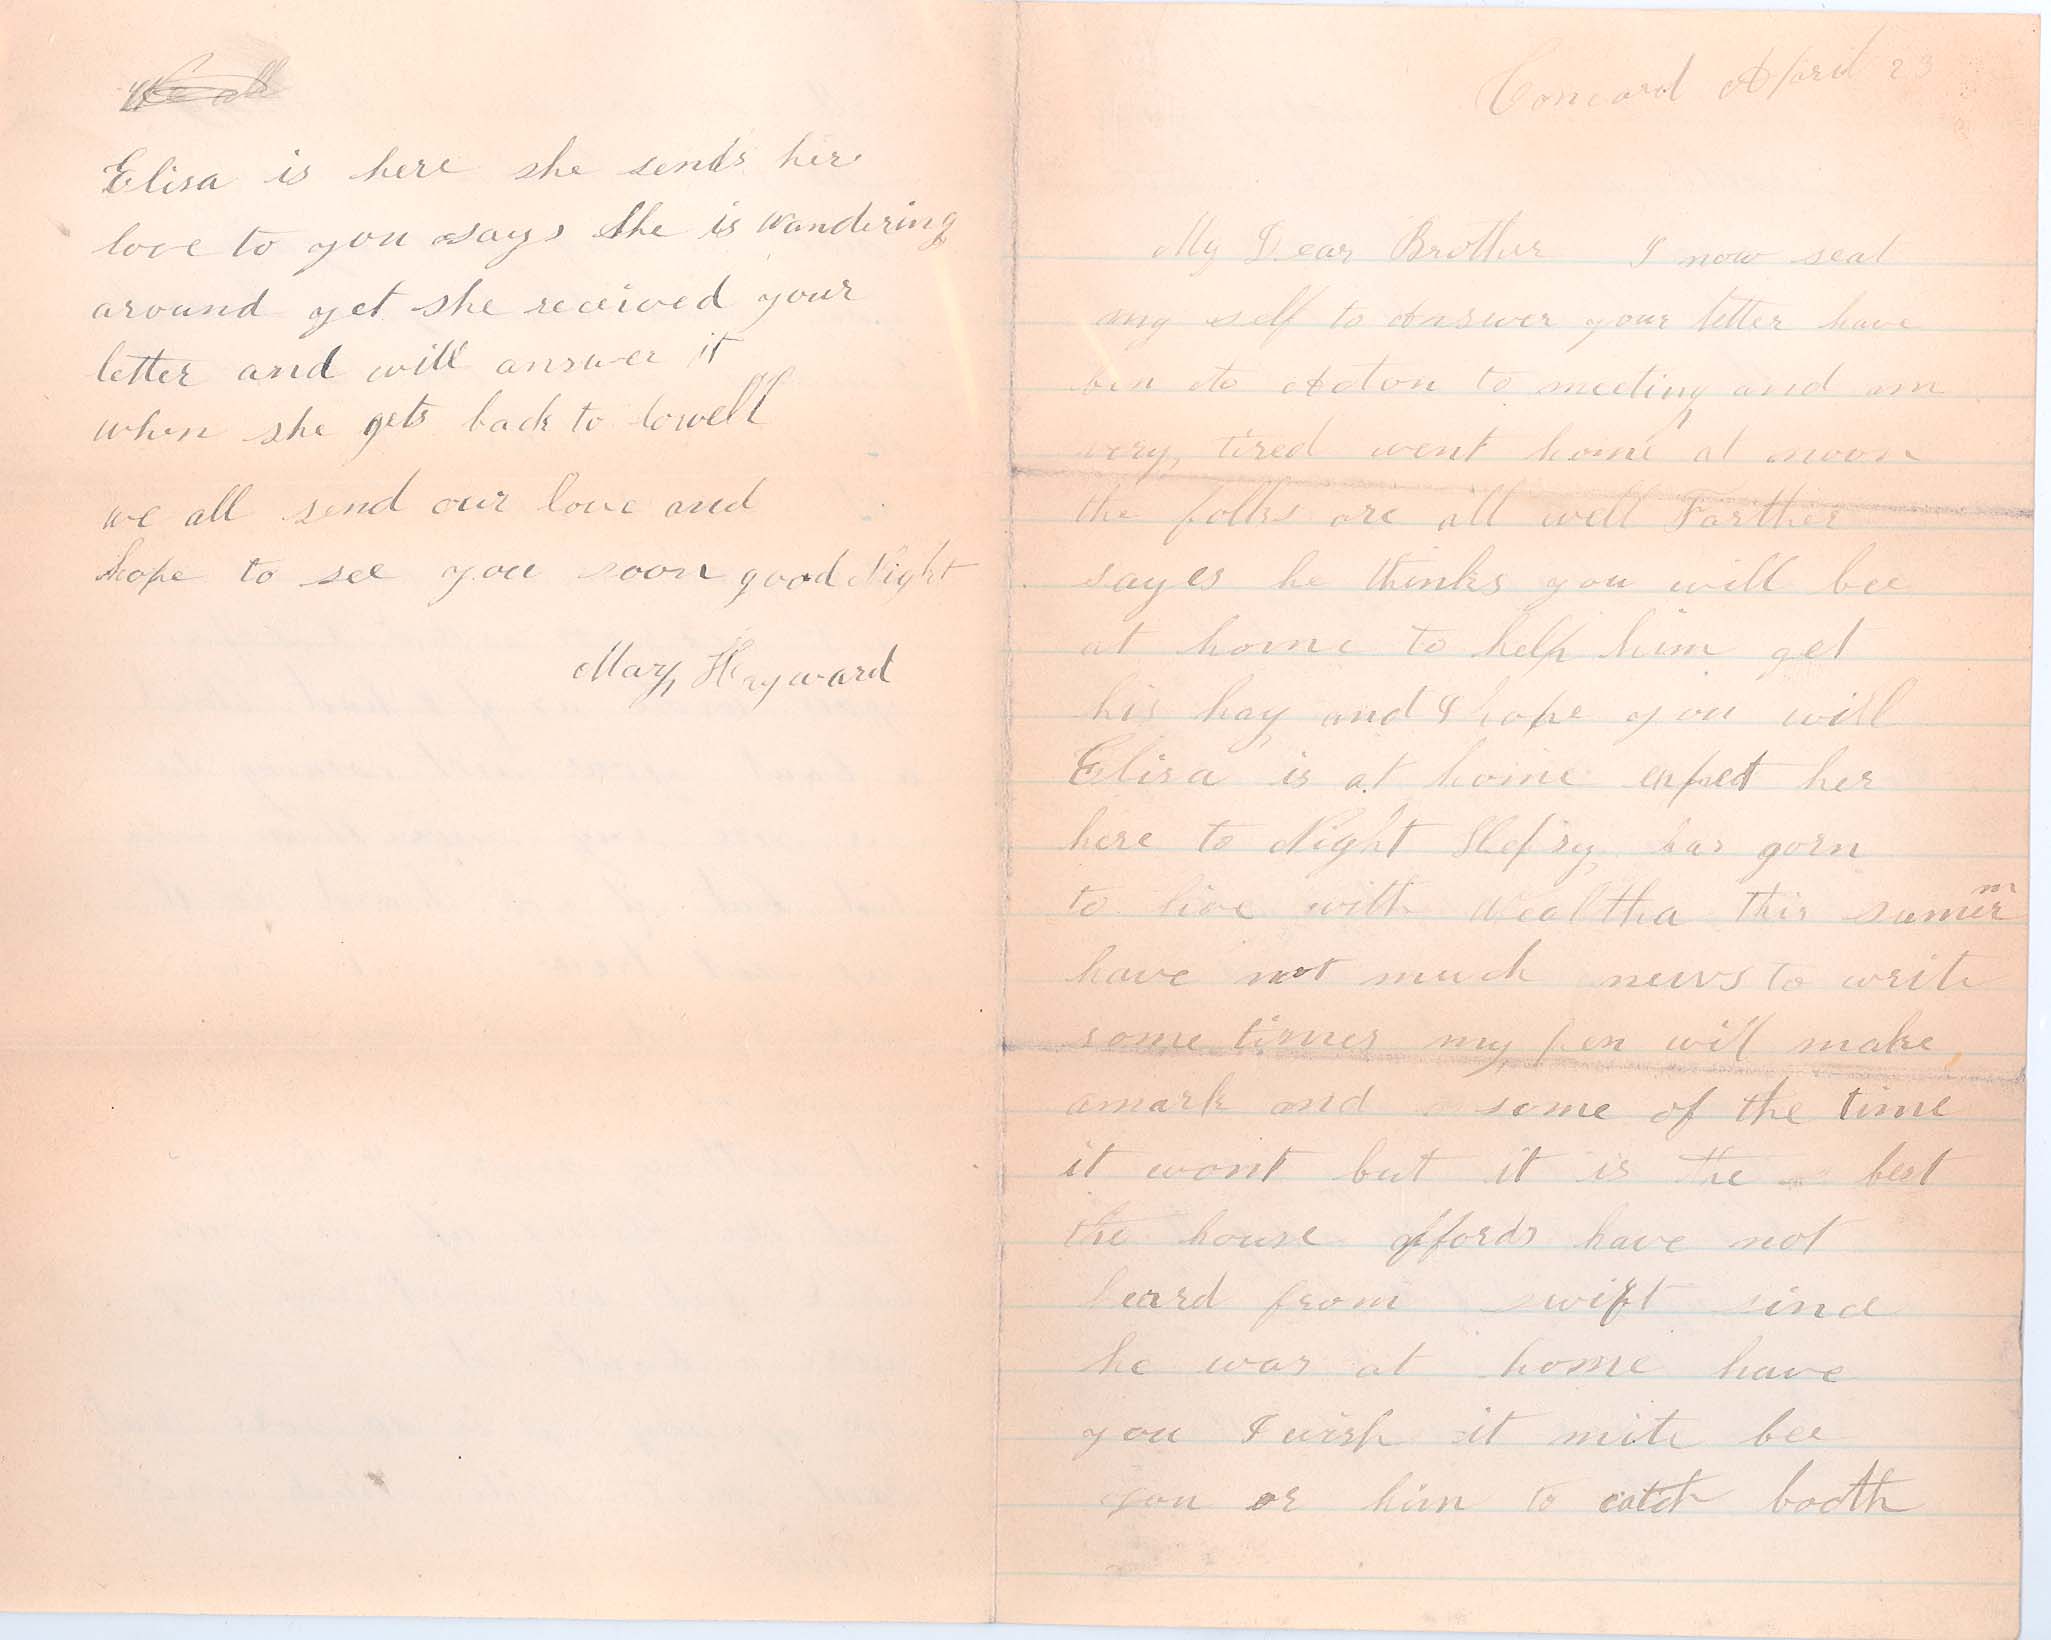 Concord April 23
My Dear Brother I now seat
my self to Answer your letter have
ben to Acton to meeting and am
very tired went home at noon
the folks are all well Farther
sayes he thinks you will bee
at home to help him get
his hay and I hope you will
Elisa is at home expect her
here to Night Hepsy has gorn
to live with Wealtha this sumer m
have not much news to write
some times my pen will make
amark and some of the time
it wont but it is the best
the house affords have not
heard from swift since
he was at home have
you I wish it mite bee
you or him to catch booth
We all
Elisa is here she sends her
love to you says she is wandering
around yet she received your
letter and will answer it
when she gets back to Lowell
we all send our love and
hope to see you soon good Night
Mary Hayward